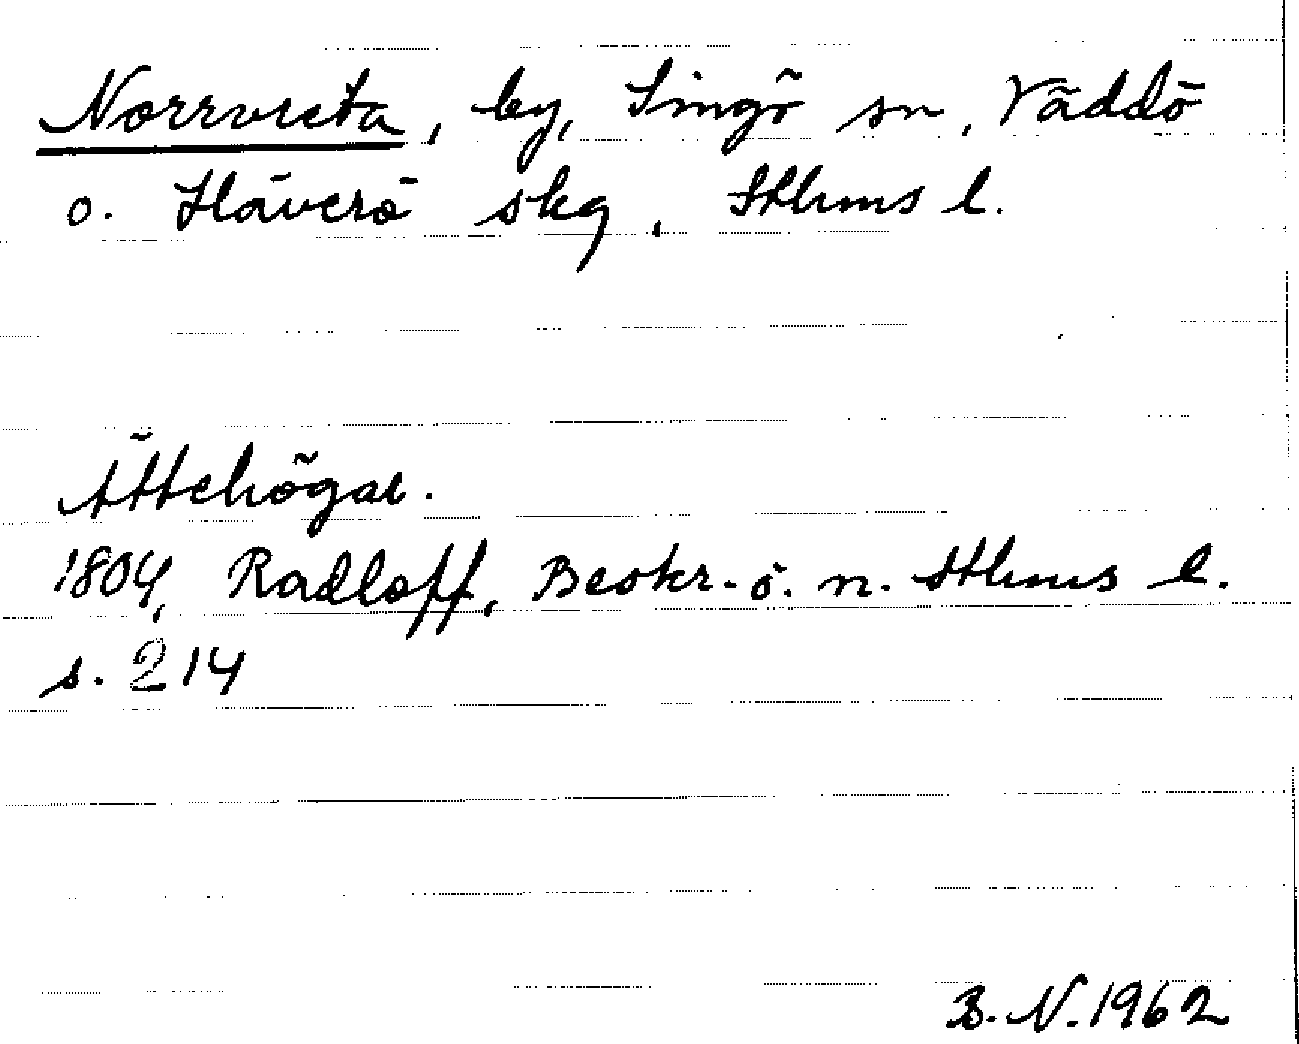 Norrvreta, by, Singö sn, Väddö
o. Häverö skg, Sthms l.
Ättehögar.
1804, Radloff, Beskr. ö. n. Sthms l.
s. 214
B. N. 1962